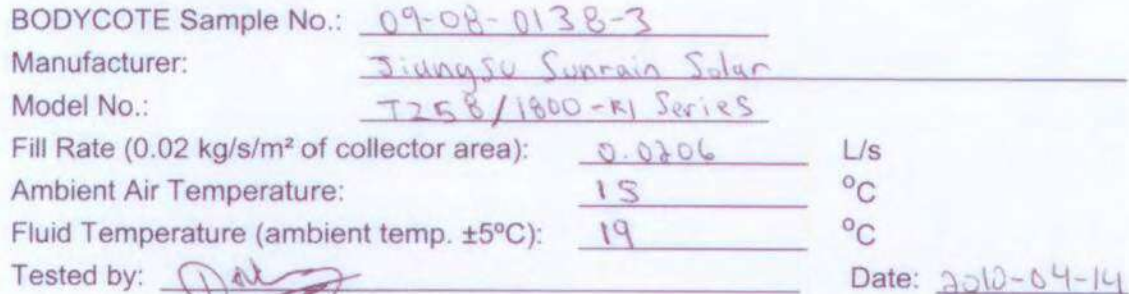 BODYCOTE Sample No.: 09-08-0138-3
Manufacturer: Jiangsu Sunrain Solar
Model No.: TZ58/1800-R1 Series
Fill Rate (0.02 kg/s/m² of collector area): 0.0206 L/s
Ambient Air Temperature: 15 °C
Fluid Temperature (ambient temp. ±5ºC): 19 °C
Tested by: Date: 2010-04-14